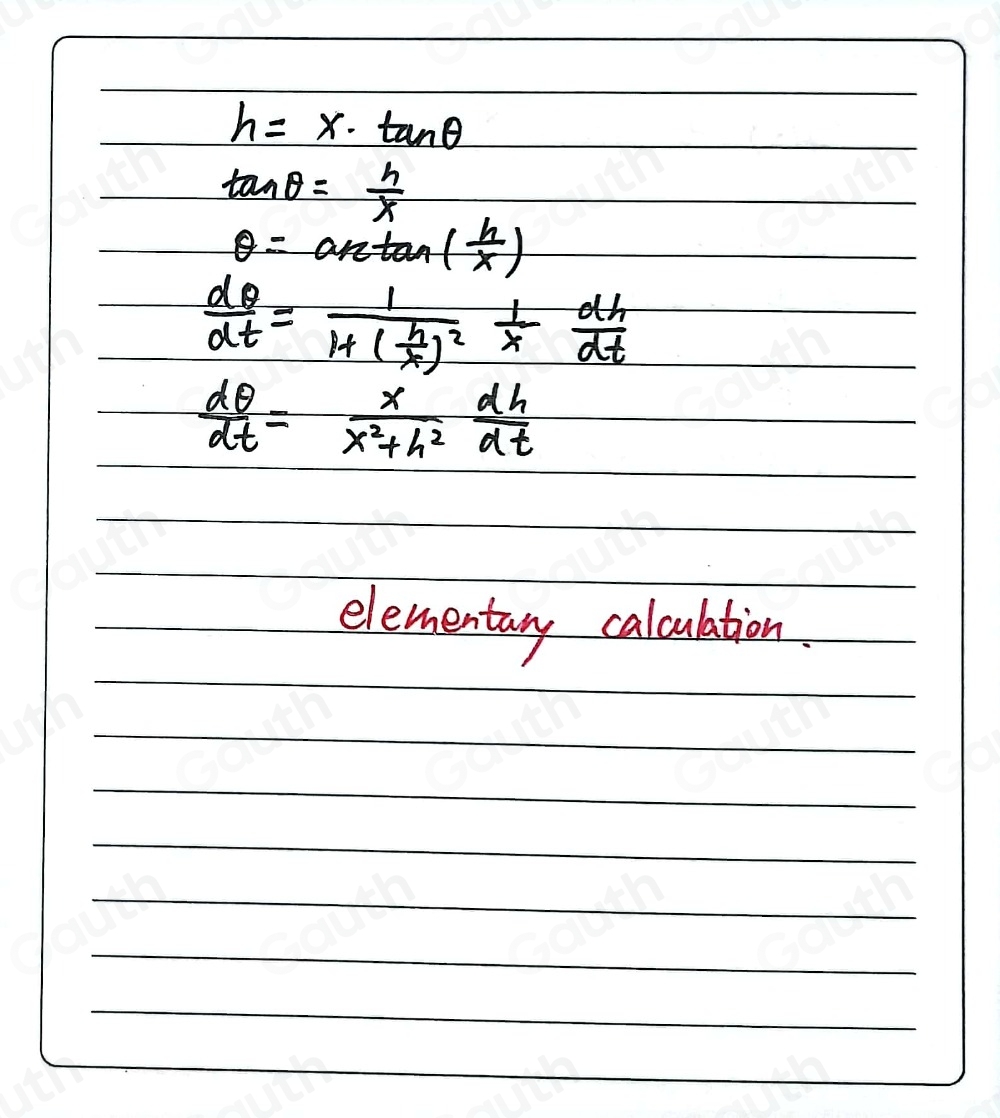 h = x · tanθ
tanθ = h/x
θ = arctan(h/x)
dθ/dt = 1/(1+(h/x)²) 1/x dh/dt
dθ/dt = x/(x²+h²) dh/dt
elementary calculation.
Gauth